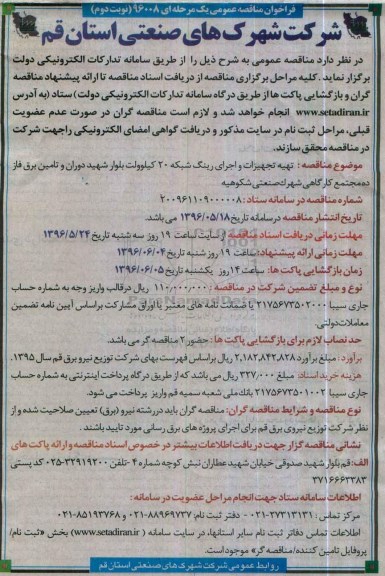 فراخوان مناقصه عمومی یک مرحله ای ۹۶۰۰۸ (نوبت دوم)
شرکت شهرک های صنعتی استان قم
در نظر دارد مناقصه عمومی به شرح ذیل را از طریق سامانه تدارکات الکترونیکی دولت
برگزار نماید. کلیه مراحل برگزاری مناقصه از دریافت اسناد مناقصه تا ارائه پیشنهاد مناقصه
گران و بازگشایی پاکت ها از طریق درگاه سامانه تدارکات الکترونیکی دولت) ستاد (به آدرس
www.setadiran.ir انجام خواهد شد و لازم است مناقصه گران در صورت عدم عضویت
قبلی، مراحل ثبت نام در سایت مذکور و دریافت گواهی امضای الکترونیکی راجهت شرکت
در مناقصه محقق سازند.
موضوع مناقصه: تهیه تجهیزات و اجرای رینگ شبکه ۲۰ کیلوولت بلوار شهید دوران و تامین برق فاز
ده مجتمع کارگاهی شهرک صنعتی شکوهیه
شماره مناقصه در سامانه ستاد: ۲۰۰۹۶۱۱۰۹۰۰۰۰۰۸
تاریخ انتشار مناقصه در سامانه تاریخ ۱۳۹۶/۰۵/۱۸ می باشد.
مهلت زمانی دریافت اسناد مناقصه از سایت ساعت ۱۹ روز سه شنبه تاریخ ۱۳۹۶/۵/۲۴
مهلت زمانی ارائه پیشنهاد: ساعت ۱۹ روز شنبه تاریخ ۱۳۹۶/۰۶/۰۴
زمان بازگشایی پاکت ها: ساعت ۱۴ روز یکشنبه تاریخ ۱۳۹۶/۰۶/۰۵
نوع و مبلغ تضمین شرکت در مناقصه: ۱۱۰,۰۰۰,۰۰۰ ریال در قالب واریز وجه به شماره حساب
جاری سیبا ۲۱۷۵۶۷۳۵۰۲۰۰۰ یا ضمانت نامه های معتبر یا اوراق مشارکت براساس آیین نامه تضمین
معاملات دولتی.
حد نصاب لازم برای بازگشایی پاکت ها: حضور ۲ مناقصه گر می باشد.
برآورد: مبلغ برآورد ۲,۱۸۲,۸۴۲,۸۲۸ ریال براساس فهرست بهای شرکت توزیع نیرو برق قم سال ۱۳۹۵.
هزینه خرید اسناد: مبلغ ۳۲۷,۰۰۰ ریال می باشد که از طریق درگاه پرداخت اینترنتی به شماره حساب
جاری سیبا ۲۱۷۵۶۷۳۵۰۱۰۰۲ بانک ملی شعبه سمیه قم واریز پرداخت می شود.
نوع مناقصه و شرایط مناقصه گران: مناقصه گران باید در رشته نیرو (برق) تعیین صلاحیت شده و از
نظر شرکت توزیع نیروی برق قم برای اجرای پروژه های برق رسانی مورد تایید باشند.
نشانی مناقصه گزار جهت دریافت اطلاعات بیشتر در خصوص اسناد مناقصه و ارائه پاکت های
الف: قم بلوار شهید صدوقی خیابان شهید عطاران نبش کوچه شماره ۴ - تلفن ۳۲۹۱۹۲۰۰-۰۲۵ کد پستی
۳۷۱۶۶۶۳۳۸۳
اطلاعات سامانه ستاد جهت انجام مراحل عضویت در سامانه:
مرکز تماس: ۲۷۳۱۳۱۳۱-۰۲۱ دفتر ثبت نام: ۸۸۹۶۹۷۳۷-۰۲۱ و ۸۵۱۹۳۷۶۸-۰۲۱
اطلاعات تماس دفاتر ثبت نام سایر استانها، در سایت سامانه (www.setadiran.ir) بخش «ثبت نام/
پروفایل تامین کننده/مناقصه گر» موجود است.
روابط عمومی شرکت شهرک های صنعتی استان قم